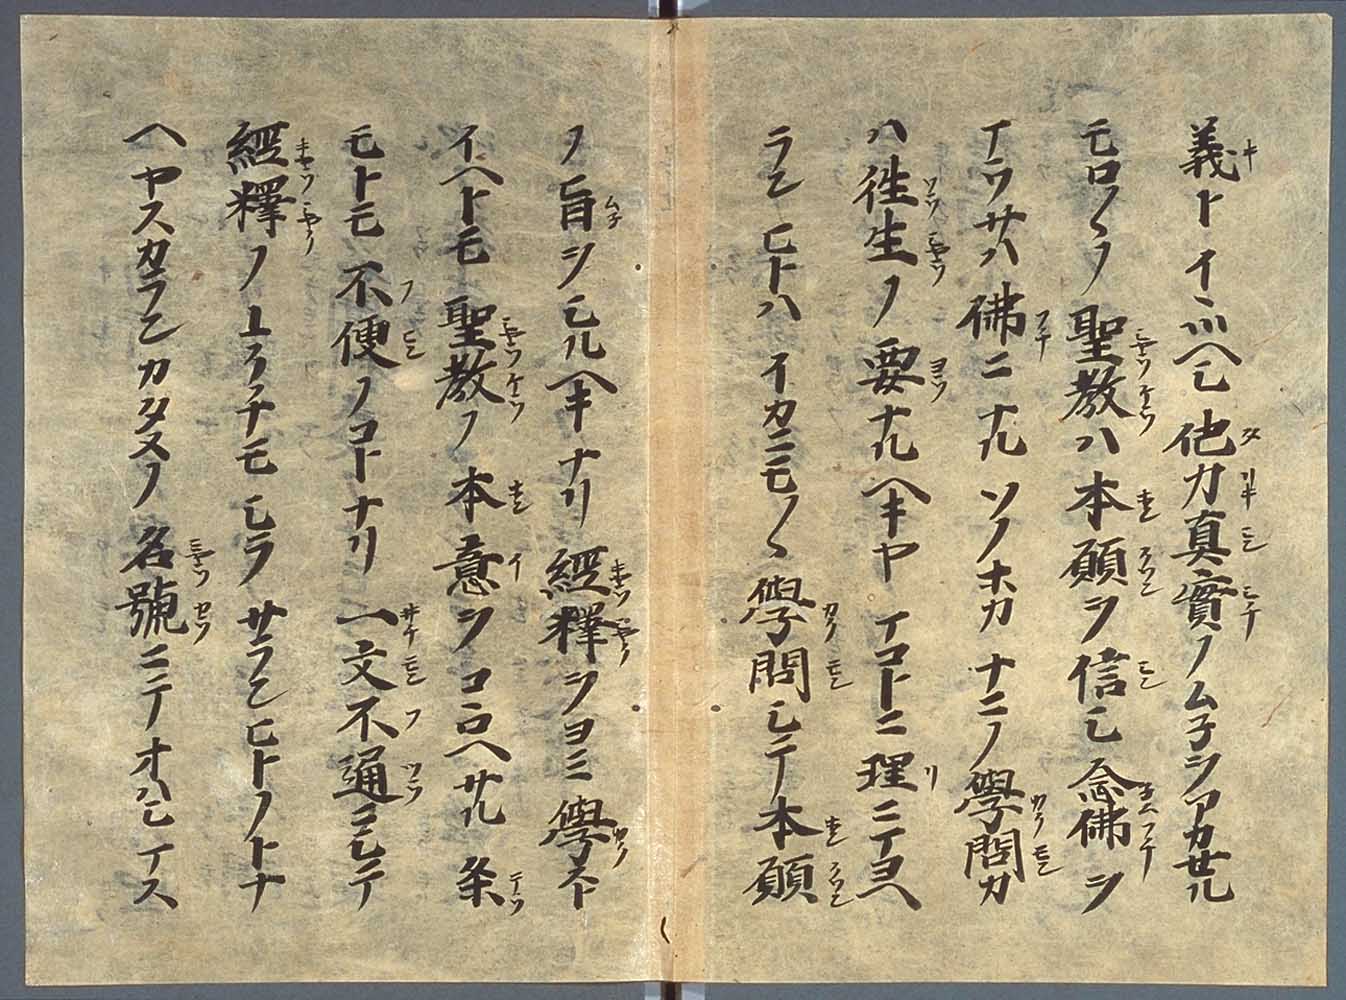 義トイヽツヘシ他力真實ノムネヲアカセル
モロ〱ノ聖教ハ本願ヲ信シ念佛ヲ
マウサハ佛ニナルソノホカナニノ學問カ
ハ往生ノ要ナルヘキヤマコトニ理ニマヨヘ
ランヒトハイカニモ〱學問シテ本願
ノ旨ヲシルヘキナリ經釋ヲヨミ學スト
イヘトモ聖教ノ本意ヲコヽロヘサル条
モトモ不便ノコトナリ一文不通ニシテ
經釋ノユクチモシラサランヒトノトナ
ヘヤスカランカタメノ名號ニテオハシマス